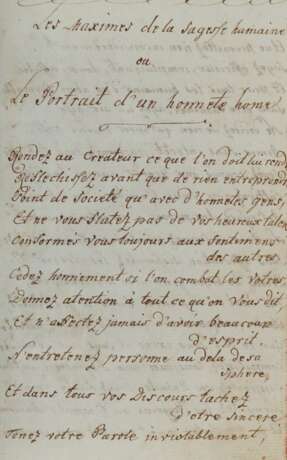 Les Maximes de la sagesse humaine
ou
Le Portrait d'un honnete home
Rendez au Createur ce que l'on doit lui rend
Reflechissez avant que de rien entreprend
Point de Societé qu'avec d'honnetes gens,
Et ne vous flatez pas de vos heureux talen
Conformés vous toujours aux sentimens
des autres
Cedez honnement si l'on combat les votres,
Donnez atention à tout ce qu'on vous dit
Et n'afectez jamais d'avoir beaucoup
d'esprit.
N'entretenez personne au dela de sa
sphere,
Et dans tous vos Discours tachez
D'etre sincere
Tenez votre Parole inviolablement,